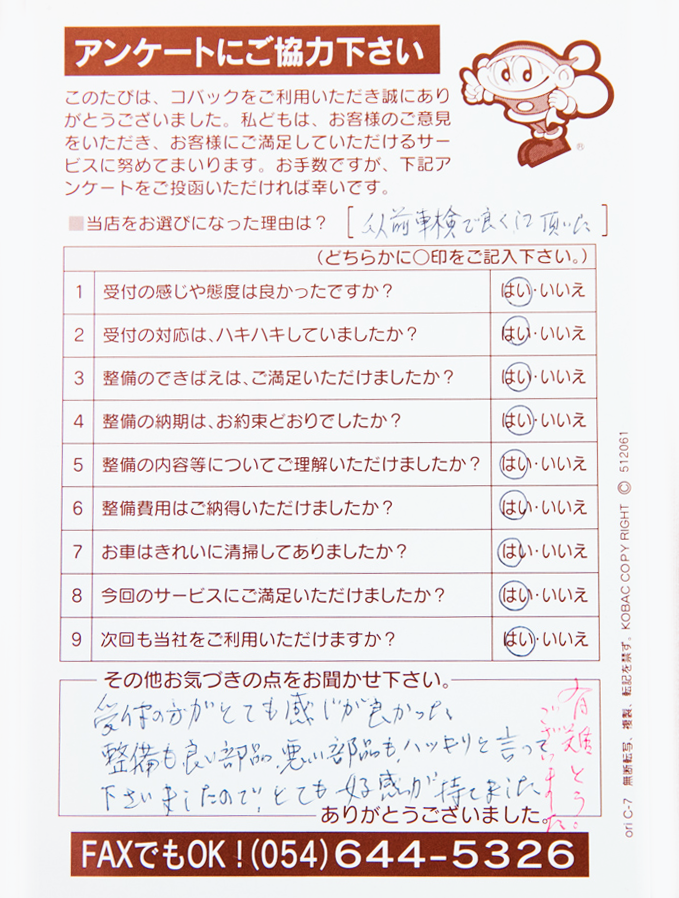 アンケートにご協力下さい
このたびは、コバックをご利用いただき誠にあり
がとうございました。私どもは、お客様のご意見
をいただき、お客様にご満足していただけるサー
ビスに努めてまいります。お手数ですが、下記ア
ンケートをご投函いただければ幸いです。
■当店をお選びになった理由は? [以前車検で良くして頂いた]
(どちらかに○印をご記入下さい。)
1 受付の感じや態度は良かったですか? はい・いいえ
2 受付の対応は、ハキハキしていましたか? はい・いいえ
3 整備のできばえは、ご満足いただけましたか? はい・いいえ
4 整備の納期は、お約束どおりでしたか? はい・いいえ
5 整備の内容等についてご理解いただけましたか? はい・いいえ
6 整備費用はご納得いただけましたか? はい・いいえ
7 お車はきれいに清掃してありましたか? はい・いいえ
8 今回のサービスにご満足いただけましたか? はい・いいえ
9 次回も当社をご利用いただけますか? はい・いいえ
その他お気づきの点をお聞かせ下さい。
受付の方がとても感じが良かった。
整備も良い部品、悪い部品も、ハッキリと言って
下さいましたので、とても好感が持てました
有難とう
ございました
ありがとうございました。
FAXでもOK!(054)644-5326
ori C-7 無断転写、複製、転記を禁ず。KOBAC COPY RIGHT © 512061
®